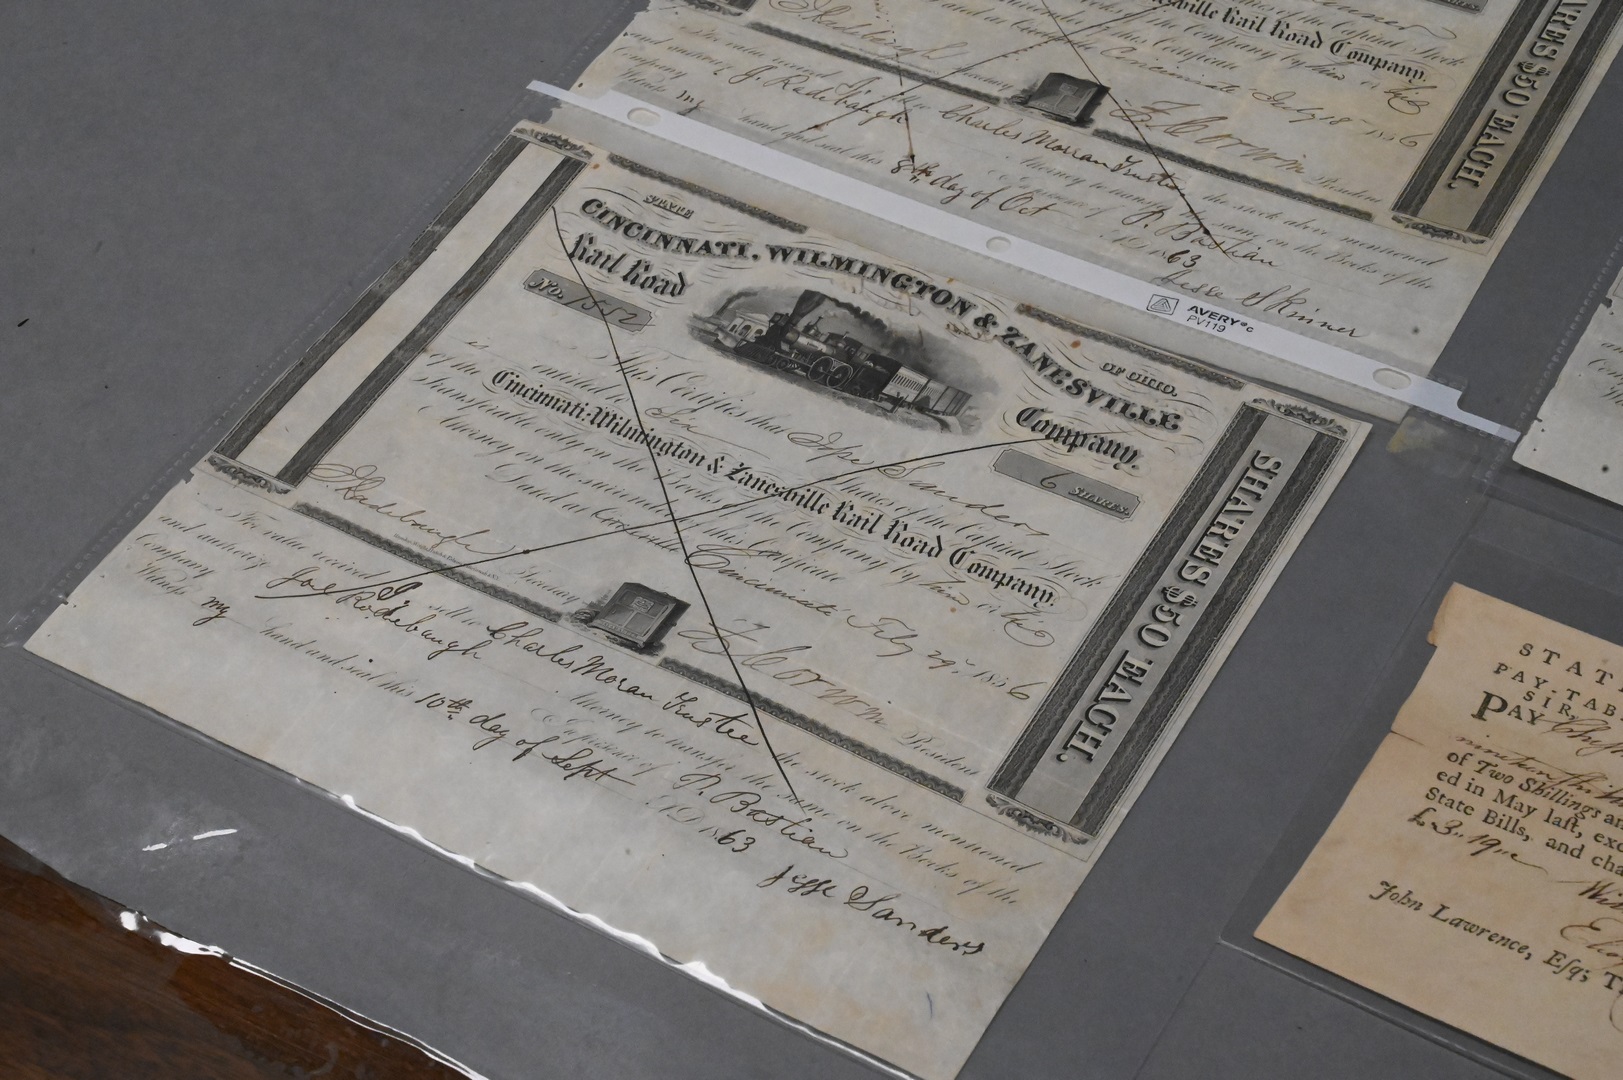 of the Capital Stock
ville Rail Road Company.
of this Certificate
Cincinnati July 18th 1856
Radebaugh
For value received
J. Radebaugh
Charles Moran Trustee
President
Company
Witness my hand and seal this 8th day of Oct A.D. 1863
Attorney to transfer the stock above mentioned
same on the Books of the
P. Bastian
Jesse Skinner
SHARES $50 EACH.
AVERY® c
PV119
STATE OF OHIO.
CINCINNATI, WILMINGTON & ZANESVILLE
Rail Road Company.
No. 1552
6 SHARES.
This Certifies that Jesse Sanders
is entitled to Six Shares of the Capital Stock
of the Cincinnati, Wilmington & Zanesville Rail Road Company.
transferable only on the Books of the Company by him or his
Attorney on the surrender of this Certificate
Dated at Cincinnati Feby 29th 1856
Radebaugh Secretary
F. Corwin President
SHARES $50 EACH.
For value received I sell to Charles Moran Trustee the stock above mentioned
and authorize Joel Radebaugh Attorney to transfer the same on the Books of the
Company
Witness my hand and seal this 10th day of Sept A.D. 1863
P. Bastian
Jesse Sanders
STAT
PAY-TAB
SIR,
PAY
of Two Shillings an
ed in May last, exc
State Bills, and cha
£3.. 19..
John Lawrence, Esq; T